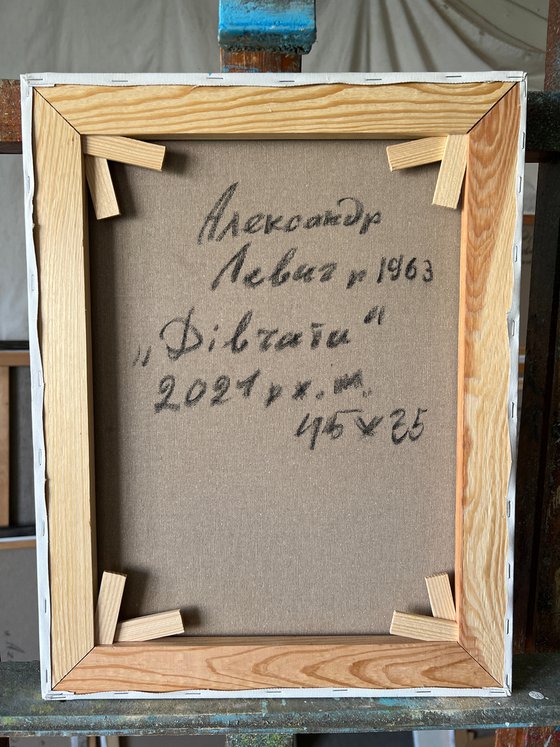 Александр
Левич р 1963
„Дівчата"
2021 р х. м.
45 х 35